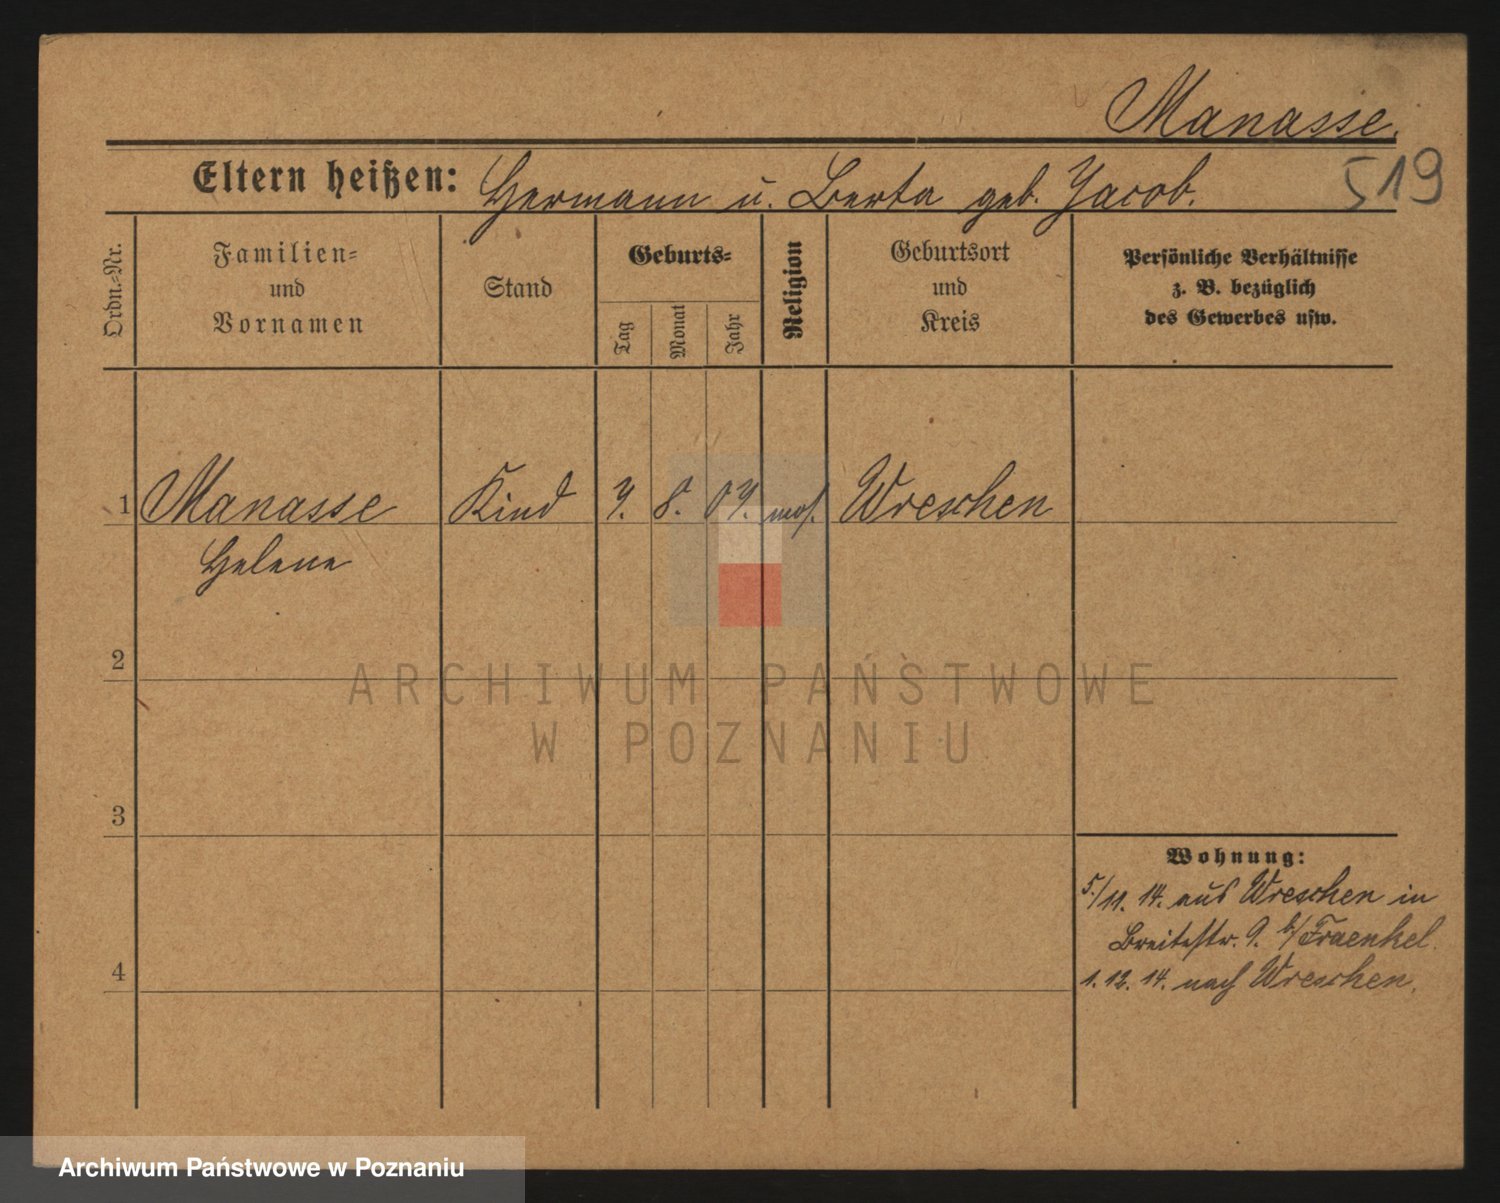 Manasse.
519
Eltern heißen: Hermann u. Berta geb. Jacob.
Ordn.=Nr.
Familien=
und
Vornamen
Stand
Geburts=
Tag
Monat
Jahr
Religion
Geburtsort
und
Kreis
Persönliche Verhältnisse
z. B. bezüglich
des Gewerbes usw.
1 Manasse Kind 7. 8. 07. mos. Wreschen
Helene
2
3
4
Wohnung:
5./11. 14. aus Wreschen in
Breitestr. 9. b/Fraenkel.
1. 12. 14. nach Wreschen.
ARCHIWUM PAŃSTWOWE
W POZNANIU
Archiwum Państwowe w Poznaniu